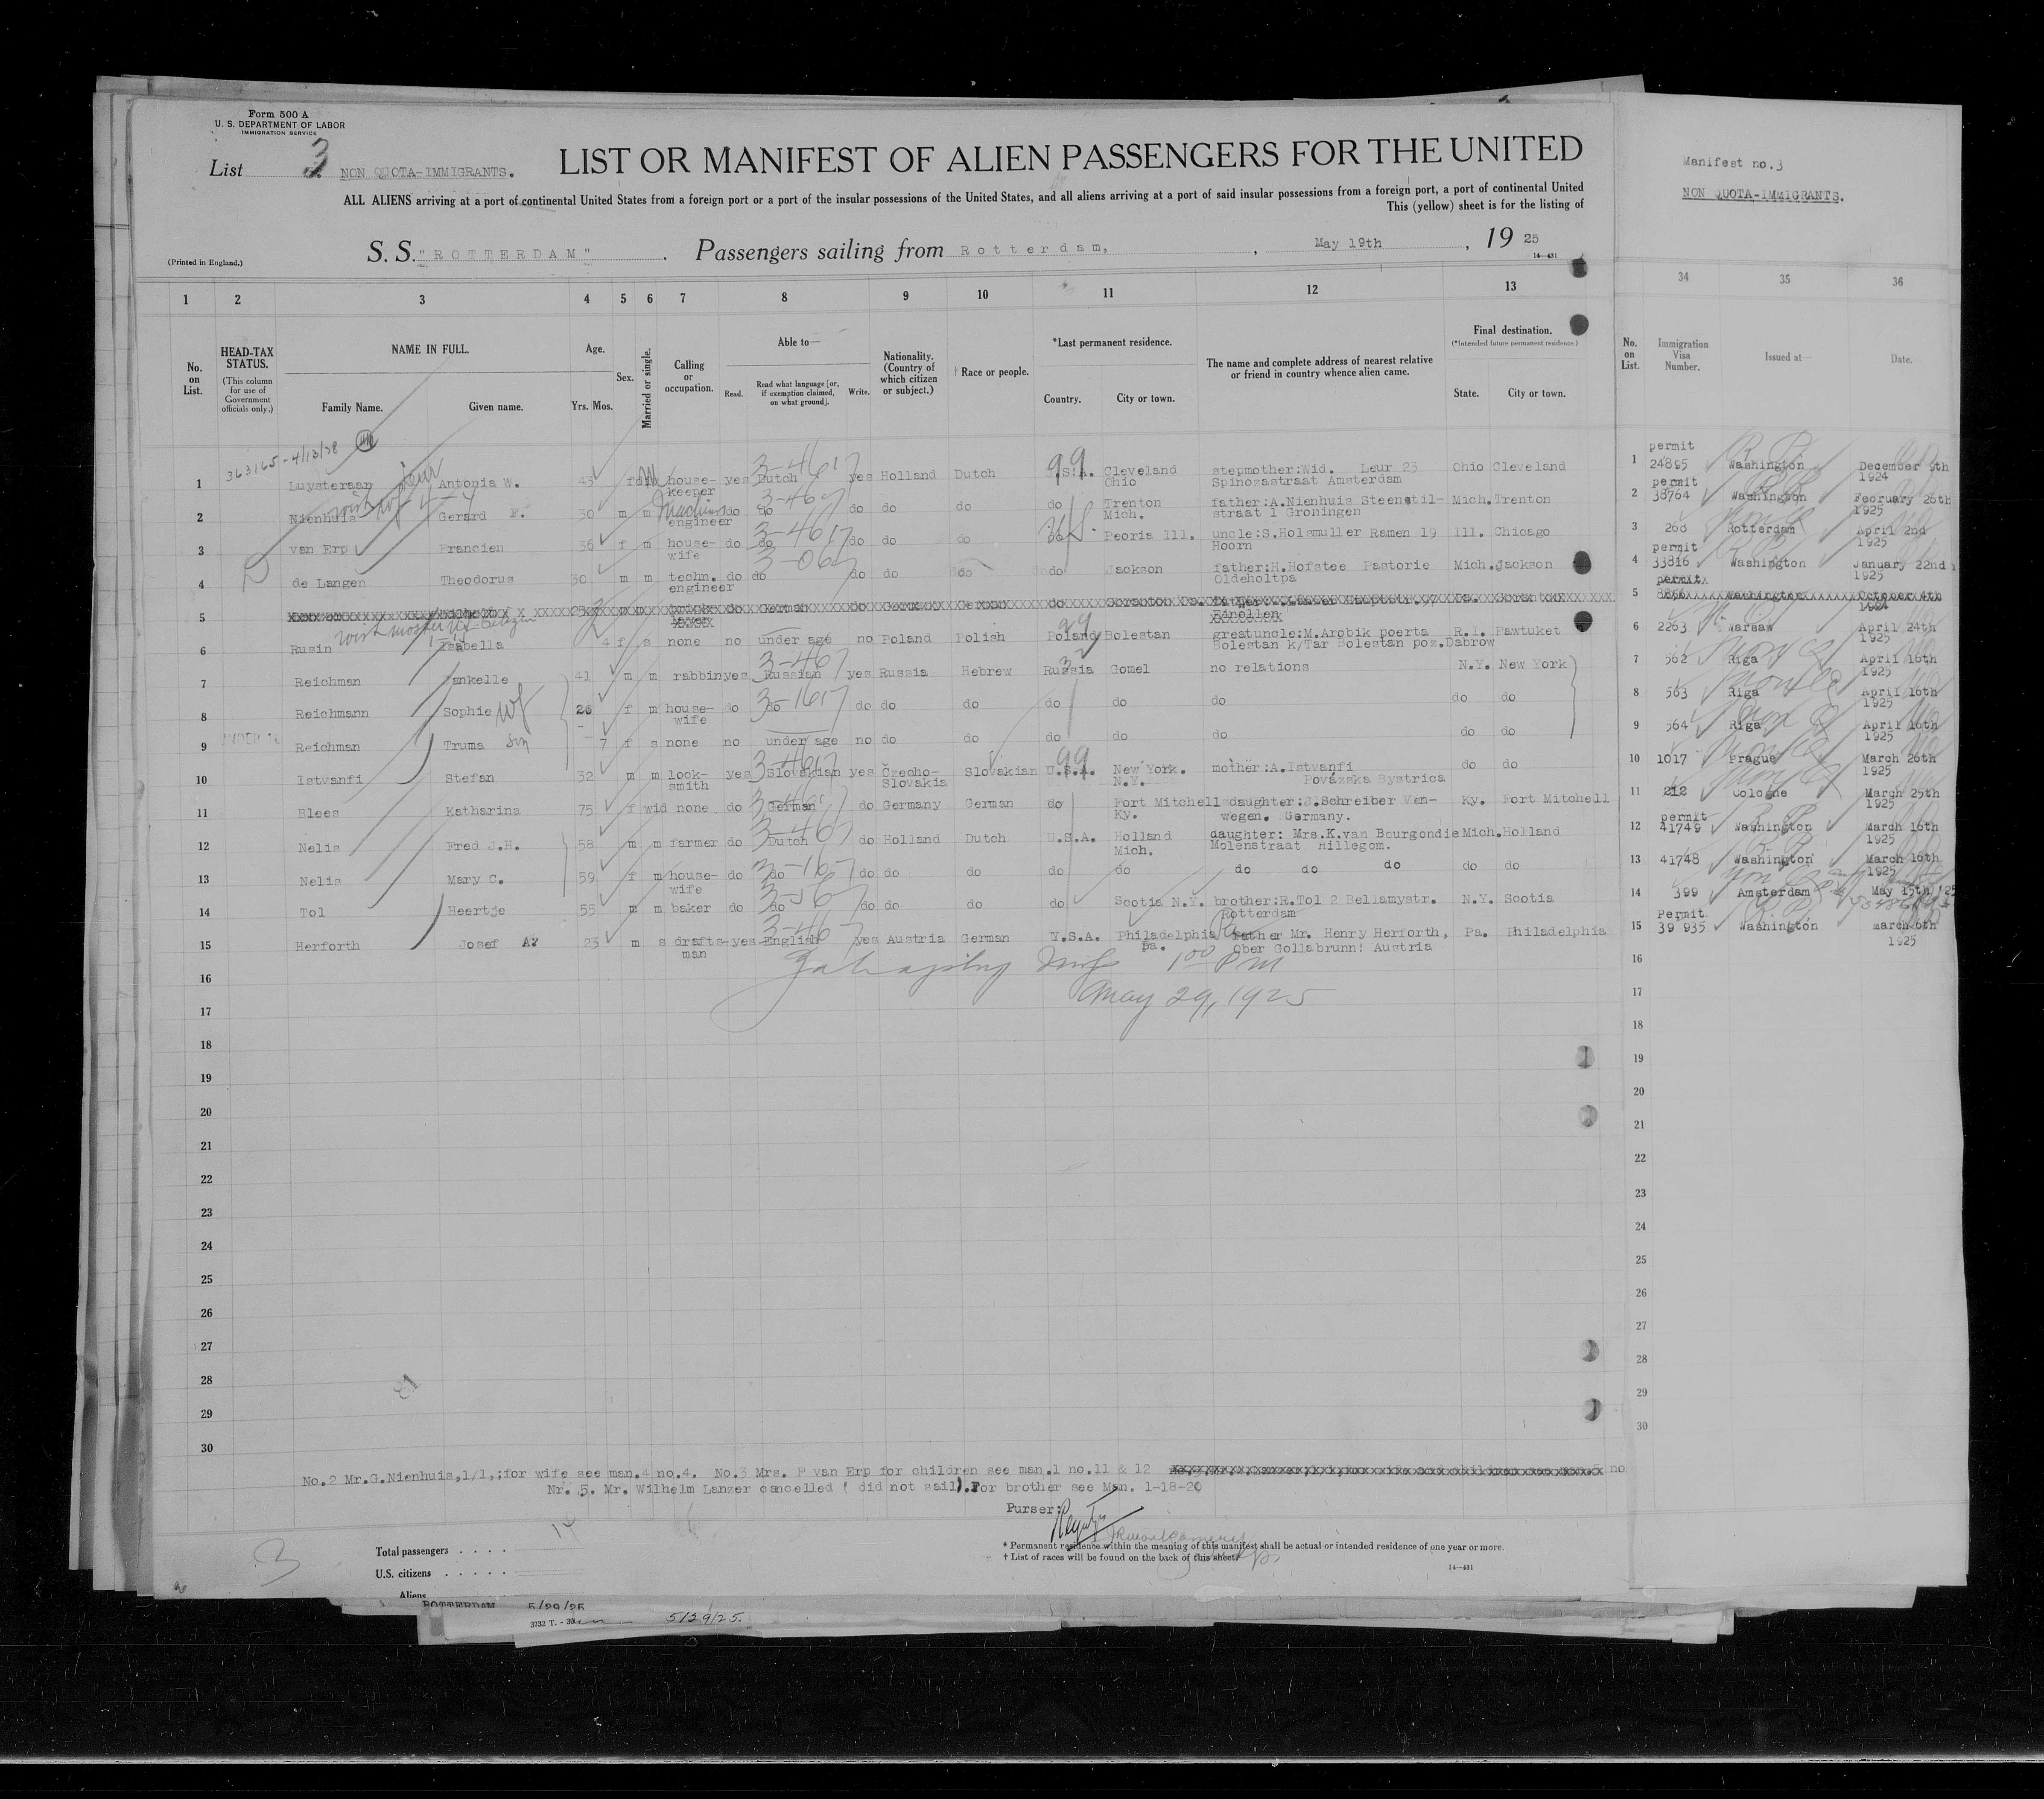 Form 500 A
U. S. DEPARTMENT OF LABOR
IMMIGRATION SERVICE
List 3 NON QUOTA-IMMIGRANTS.
LIST OR MANIFEST OF ALIEN PASSENGERS FOR THE UNITED
ALL ALIENS arriving at a port of continental United States from a foreign port or a port of the insular possessions of the United States, and all aliens arriving at a port of said insular possessions from a foreign port, a port of continental United
This (yellow) sheet is for the listing of
S. S. "ROTTERDAM" . Passengers sailing from Rotterdam, , May 19th , 19 25
(Printed in England.)
14—431
Manifest no.3
NON QUOTA-IMMIGRANTS.
1 2 3 4 5 6 7 8 9 10 11 12 13 34 35 36
No. on List.
HEAD-TAX STATUS.
(This column for use of Government officials only.)
NAME IN FULL.
Family Name. Given name.
Age.
Yrs. Mos.
Sex.
Married or single.
Calling or occupation.
Able to—
Read. Read what language [or, if exemption claimed, on what ground]. Write.
Nationality. (Country of which citizen or subject.)
† Race or people.
*Last permanent residence.
Country. City or town.
The name and complete address of nearest relative or friend in country whence alien came.
Final destination.
(*Intended future permanent residence.)
State. City or town.
No. on List.
Immigration Visa Number.
Issued at—
Date.
363165 - 4/13/38
1 Luysteraan Antonia W. 43 f house-keeper yes Dutch yes Holland Dutch U.S.A. Cleveland Ohio stepmother:Wid. Leur 23 Spinozastraat Amsterdam Ohio Cleveland 1 permit 24895 Washington December 9th 1924
2 Nienhuis Gerard F. 30 m m engineer do do do do do do Trenton Mich. father:A.Nienhuis Steenstil-straat 1 Groningen Mich. Trenton 2 permit 38764 Washington February 26th 1925
3 van Erp Francien 36 f m house-wife do do do do do Peoria Ill. uncle:S.Holsmuller Ramen 19 Hoorn Ill. Chicago 3 268 Rotterdam April 2nd 1925
4 de Langen Theodorus 30 m m techn. engineer do do do do do do Jackson father:H.Hofstee Pastorie Oldeholtpa Mich. Jackson 4 permit 33816 Washington January 22nd 1925
5 German do Germany German do Scranton 5 permit Washington October 4th 1924
6 Rusin Isabella 4 f s none no under age no Poland Polish Poland Bolestan greatuncle:M.Arobik poerta Bolestan k/Tar Bolestan poz.Dabrow R.I. Pawtuket 6 2263 Warsaw April 24th 1925
7 Reichman Jankelle 41 m m rabbin yes Russian yes Russia Hebrew Russia Gomel no relations N.Y. New York 7 562 Riga April 16th 1925
8 Reichmann Sophie wf 26 f m house-wife do do do do do do do do do do 8 563 Riga April 16th 1925
9 Reichman Truma 7 f s none no under age no do do do do do do do 9 564 Riga April 16th 1925
10 Istvanfi Stefan 32 m m lock-smith yes Slovakian yes Czecho-Slovakia Slovakian U.S.A. New York. N.Y. mother:A.Istvanfi Povazska Bystrica do do 10 1017 Prague March 26th 1925
11 Blees Katharina 75 f wid none do German do Germany German do Fort Mitchell Ky. daughter:J.Schreiber Wen-wegen. Germany. Ky. Fort Mitchell 11 212 Cologne March 25th 1925
12 Nelis Fred J.H. 58 m m farmer do Dutch do Holland Dutch U.S.A. Holland Mich. daughter: Mrs.K.van Bourgondie Molenstraat Hillegom. Mich. Holland 12 permit 41749 Washington March 16th 1925
13 Nelis Mary C. 59 f m house-wife do do do do do do do do do do do do 13 41748 Washington March 16th 1925
14 Tol Heertje 55 m m baker do do do do do do Scotia N.Y. brother:R.Tol 2 Bellamystr. Rotterdam N.Y. Scotia 14 399 Amsterdam May 15th 25
15 Herforth Josef A. 23 m s drafts-man yes English yes Austria German U.S.A. Philadelphia pa. father Mr. Henry Herforth, Ober Gollabrunn! Austria Pa. Philadelphia 15 Permit 39 935 Washington March 6th 1925
16 16
1 00 PM
17 May 29, 1925 17
18 18
19 19
20 20
21 21
22 22
23 23
24 24
25 25
26 26
27 27
28 28
29 29
30 30
No.2 Mr.G.Nienhuis,1/1,:for wife see man.4 no.4. No.3 Mrs. F van Erp for children see man.1 no.11 & 12
Nr. 5. Mr. Wilhelm Lanzer cancelled ( did not sail). For brother see Man. 1-18-20
Purser:
Total passengers . . . . 14
U.S. citizens . . . . .
Aliens
* Permanent residence within the meaning of this manifest shall be actual or intended residence of one year or more.
† List of races will be found on the back of this sheet.
14—431
3
ROTTERDAM 5/29/25
3732 T. - 30
5/29/25.